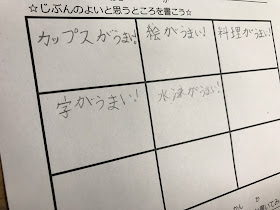 ☆じぶんのよいと思うところを書こう☆
カップスがうまい!
絵がうまい!
料理がうまい!
字がうまい!
水泳がうまい!